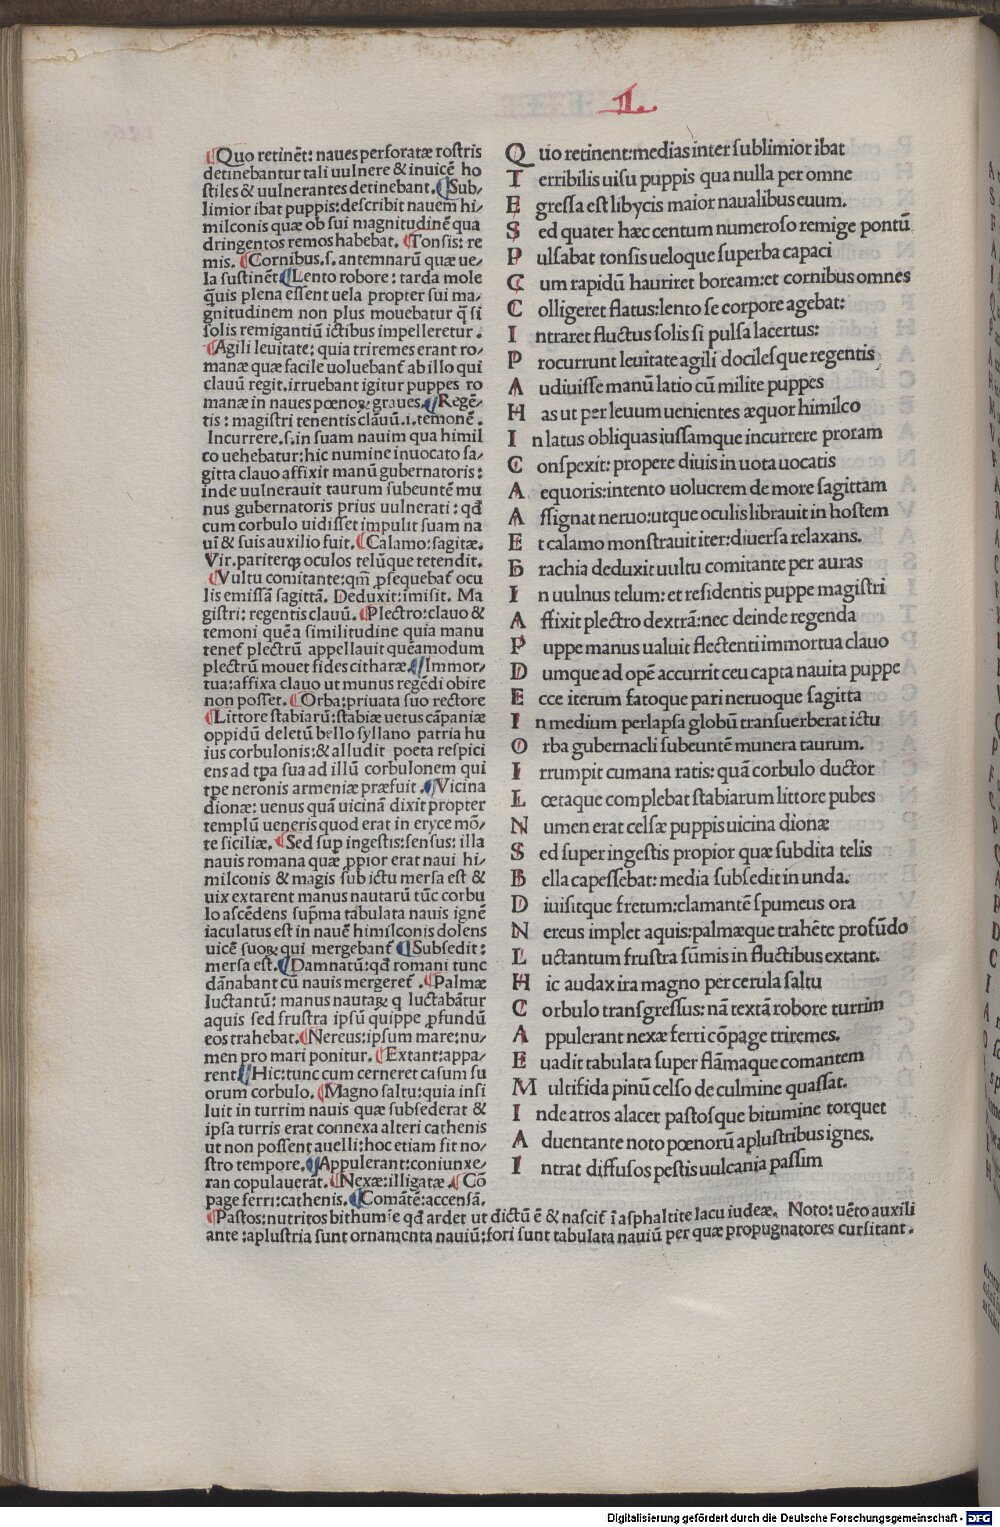 L.
¶Quo retinēt: naues perforatæ rostris
detinebantur tali uulnere & inuicē ho
stiles & uulnerantes detinebant. ¶Sub/
limior ibat puppis: describit nauem hi/
milconis quæ ob sui magnitudinē qua
dringentos remos habebat. ¶Tonsis: re
mis. ¶Cornibus.s. antemnarū quæ ue/
la sustinēt ¶Lento robore: tarda mole
q̄uis plena essent uela propter sui ma/
gnitudinem non plus mouebatur q̄ si
solis remigantiū ictibus impelleretur.
¶Agili leuitate: quia triremes erant ro/
manæ quæ facile uoluebant̄ ab illo qui
clauū regit. irruebant igitur puppes ro
manæ in naues pœnoꝝ graues. ¶Regē/
tis: magistri tenentis clauū.i. temonē.
Incurrere.s. in suam nauim qua himil
co uehebatur: hic numine inuocato sa/
gitta clauo affixit manū gubernatoris:
inde uulnerauit taurum subeuntē mu
nus gubernatoris prius uulnerati: qđ
cum corbulo uidisset impulit suam na
uī & suis auxilio fuit. ¶Calamo: sagitæ.
Vir. pariterqꝫ oculos telūque tetendit.
¶Vultu comitante: qm̄ ꝓsequebat̄ ocu
lis emissā sagittā. Deduxit: īmisit. Ma
gistri: regentis clauū. ¶Plectro: clauo &
temoni quē a similitudine quia manu
tenet̄ plectrū appellauit quēamodum
plectrū mouet fides citharæ. ¶Immor/
tua: affixa clauo ut munus regēdi obire
non posset. ¶Orba: priuata suo rectore
¶Littore stabiarū: stabiæ uetus cāpaniæ
oppidū deletū bello syllano patria hu
ius corbulonis: & alludit poeta respici
ens ad tp̄a sua ad illū corbulonem qui
tp̄e neronis armeniæ præfuit. ¶Vicina
dionæ: uenus quā uicinā dixit propter
templū ueneris quod erat in eryce mō/
te siciliæ. ¶Sed sup̄ ingestis: sensus: illa
nauis romana quæ ꝓpior erat naui hi/
milconis & magis sub ictu mersa est &
uix extarent manus nautarū tūc corbu
lo ascēdens sup̄ma tabulata nauis ignē
iaculatus est in nauē himilconis dolens
uicē suoꝝ qui mergebant̄ ¶Subsedit:
mersa est. ¶Damnatū: qđ romani tunc
dānabant cū nauis mergeret̄. ¶Palmæ
luctantū: manus nautaꝝ q̄ luctabātur
aquis sed frustra ipsū quippe ꝓfundū
eos trahebat. ¶Nereus: ipsum mare: nu/
men pro mari ponitur. ¶Extant: appa/
rent ¶Hic: tunc cum cerneret casum su
orum corbulo. ¶Magno saltu: quia insi
luit in turrim nauis quæ subsederat &
ipsa turris erat connexa alteri cathenis
ut non possent auelli: hoc etiam fit no/
stro tempore. ¶Appulerant: coniunxe/
ran copulauerāt. ¶Nexæ: illigatæ. ¶Cō
page ferri: cathenis. ¶Comātē: accensā.
¶Pastos: nutritos bithumīe qđ ardet ut dictū ē & nascit̄ ī asphaltite lacu iudeæ. Noto: uēto auxili
ante: aplustria sunt ornamenta nauiū: fori sunt tabulata nauiū per quæ propugnatores cursitant.
Quo retinent: medias inter sublimior ibat
Terribilis uisu puppis qua nulla per omne
Egressa est libycis maior naualibus euum.
Sed quater hæc centum numeroso remige pontū
Pulsabat tonsis ueloque superba capaci
Cum rapidū hauriret boream: et cornibus omnes
Colligeret flatus: lento se corpore agebat:
Intraret fluctus solis si pulsa lacertus:
Procurrunt leuitate agili docilesque regentis
Audiuisse manū latio cū milite puppes
Has ut per leuum uenientes æquor himilco
In latus obliquas iussamque incurrere proram
Conspexit: propere diuis in uota uocatis
Aequoris: intento uolucrem de more sagittam
Assignat neruo: utque oculis librauit in hostem
Et calamo monstrauit iter: diuersa relaxans.
Brachia deduxit uultu comitante per auras
In uulnus telum: et residentis puppe magistri
Affixit plectro dextrā: nec deinde regenda
Puppe manus ualuit flectenti immortua clauo
Dumque ad opē accurrit ceu capta nauita puppe
Ecce iterum fatoque pari neruoque sagitta
In medium perlapsa globū transuerberat ictu
Orba gubernacli subeuntē munera taurum.
Irrumpit cumana ratis: quā corbulo ductor
Lœtaque complebat stabiarum littore pubes
Numen erat celsæ puppis uicina dionæ
Sed super ingestis propior quæ subdita telis
Bella capessebat: media subsedit in unda.
Diuisitque fretum: clamantē spumeus ora
Nereus implet aquis: palmæque trahēte profūdo
Luctantum frustra sūmis in fluctibus extant.
Hic audax ira magno per cerula saltu
Corbulo transgressus: nā textā robore turrim
Appulerant nexæ ferri cōpage triremes.
Euadit tabulata super flāmaque comantem
Multifida pinū celso de culmine quassat.
Inde atros alacer pastosque bitumine torquet
Aduentante noto pœnorū aplustribus ignes.
Intrat diffusos pestis uulcania passim
Digitalisierung gefördert durch die Deutsche Forschungsgemeinschaft - DFG